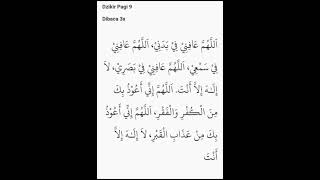 Dzikir Pagi 9
Dibaca 3x
اَللَّهُمَّ عَافِنِيْ فِيْ بَدَنِيْ، اَللَّهُمَّ عَافِنِيْ
فِيْ سَمْعِيْ، اَللَّهُمَّ عَافِنِيْ فِيْ بَصَرِيْ، لاَ
إِلَـهَ إِلاَّ أَنْتَ. اَللَّهُمَّ إِنِّي أَعُوْذُ بِكَ
مِنَ الْكُفْرِ وَالْفَقْرِ، اَللَّهُمَّ إِنِّي أَعُوْذُ
بِكَ مِنْ عَذَابِ الْقَبْرِ، لاَ إِلَـهَ إِلاَّ
أَنْتَ